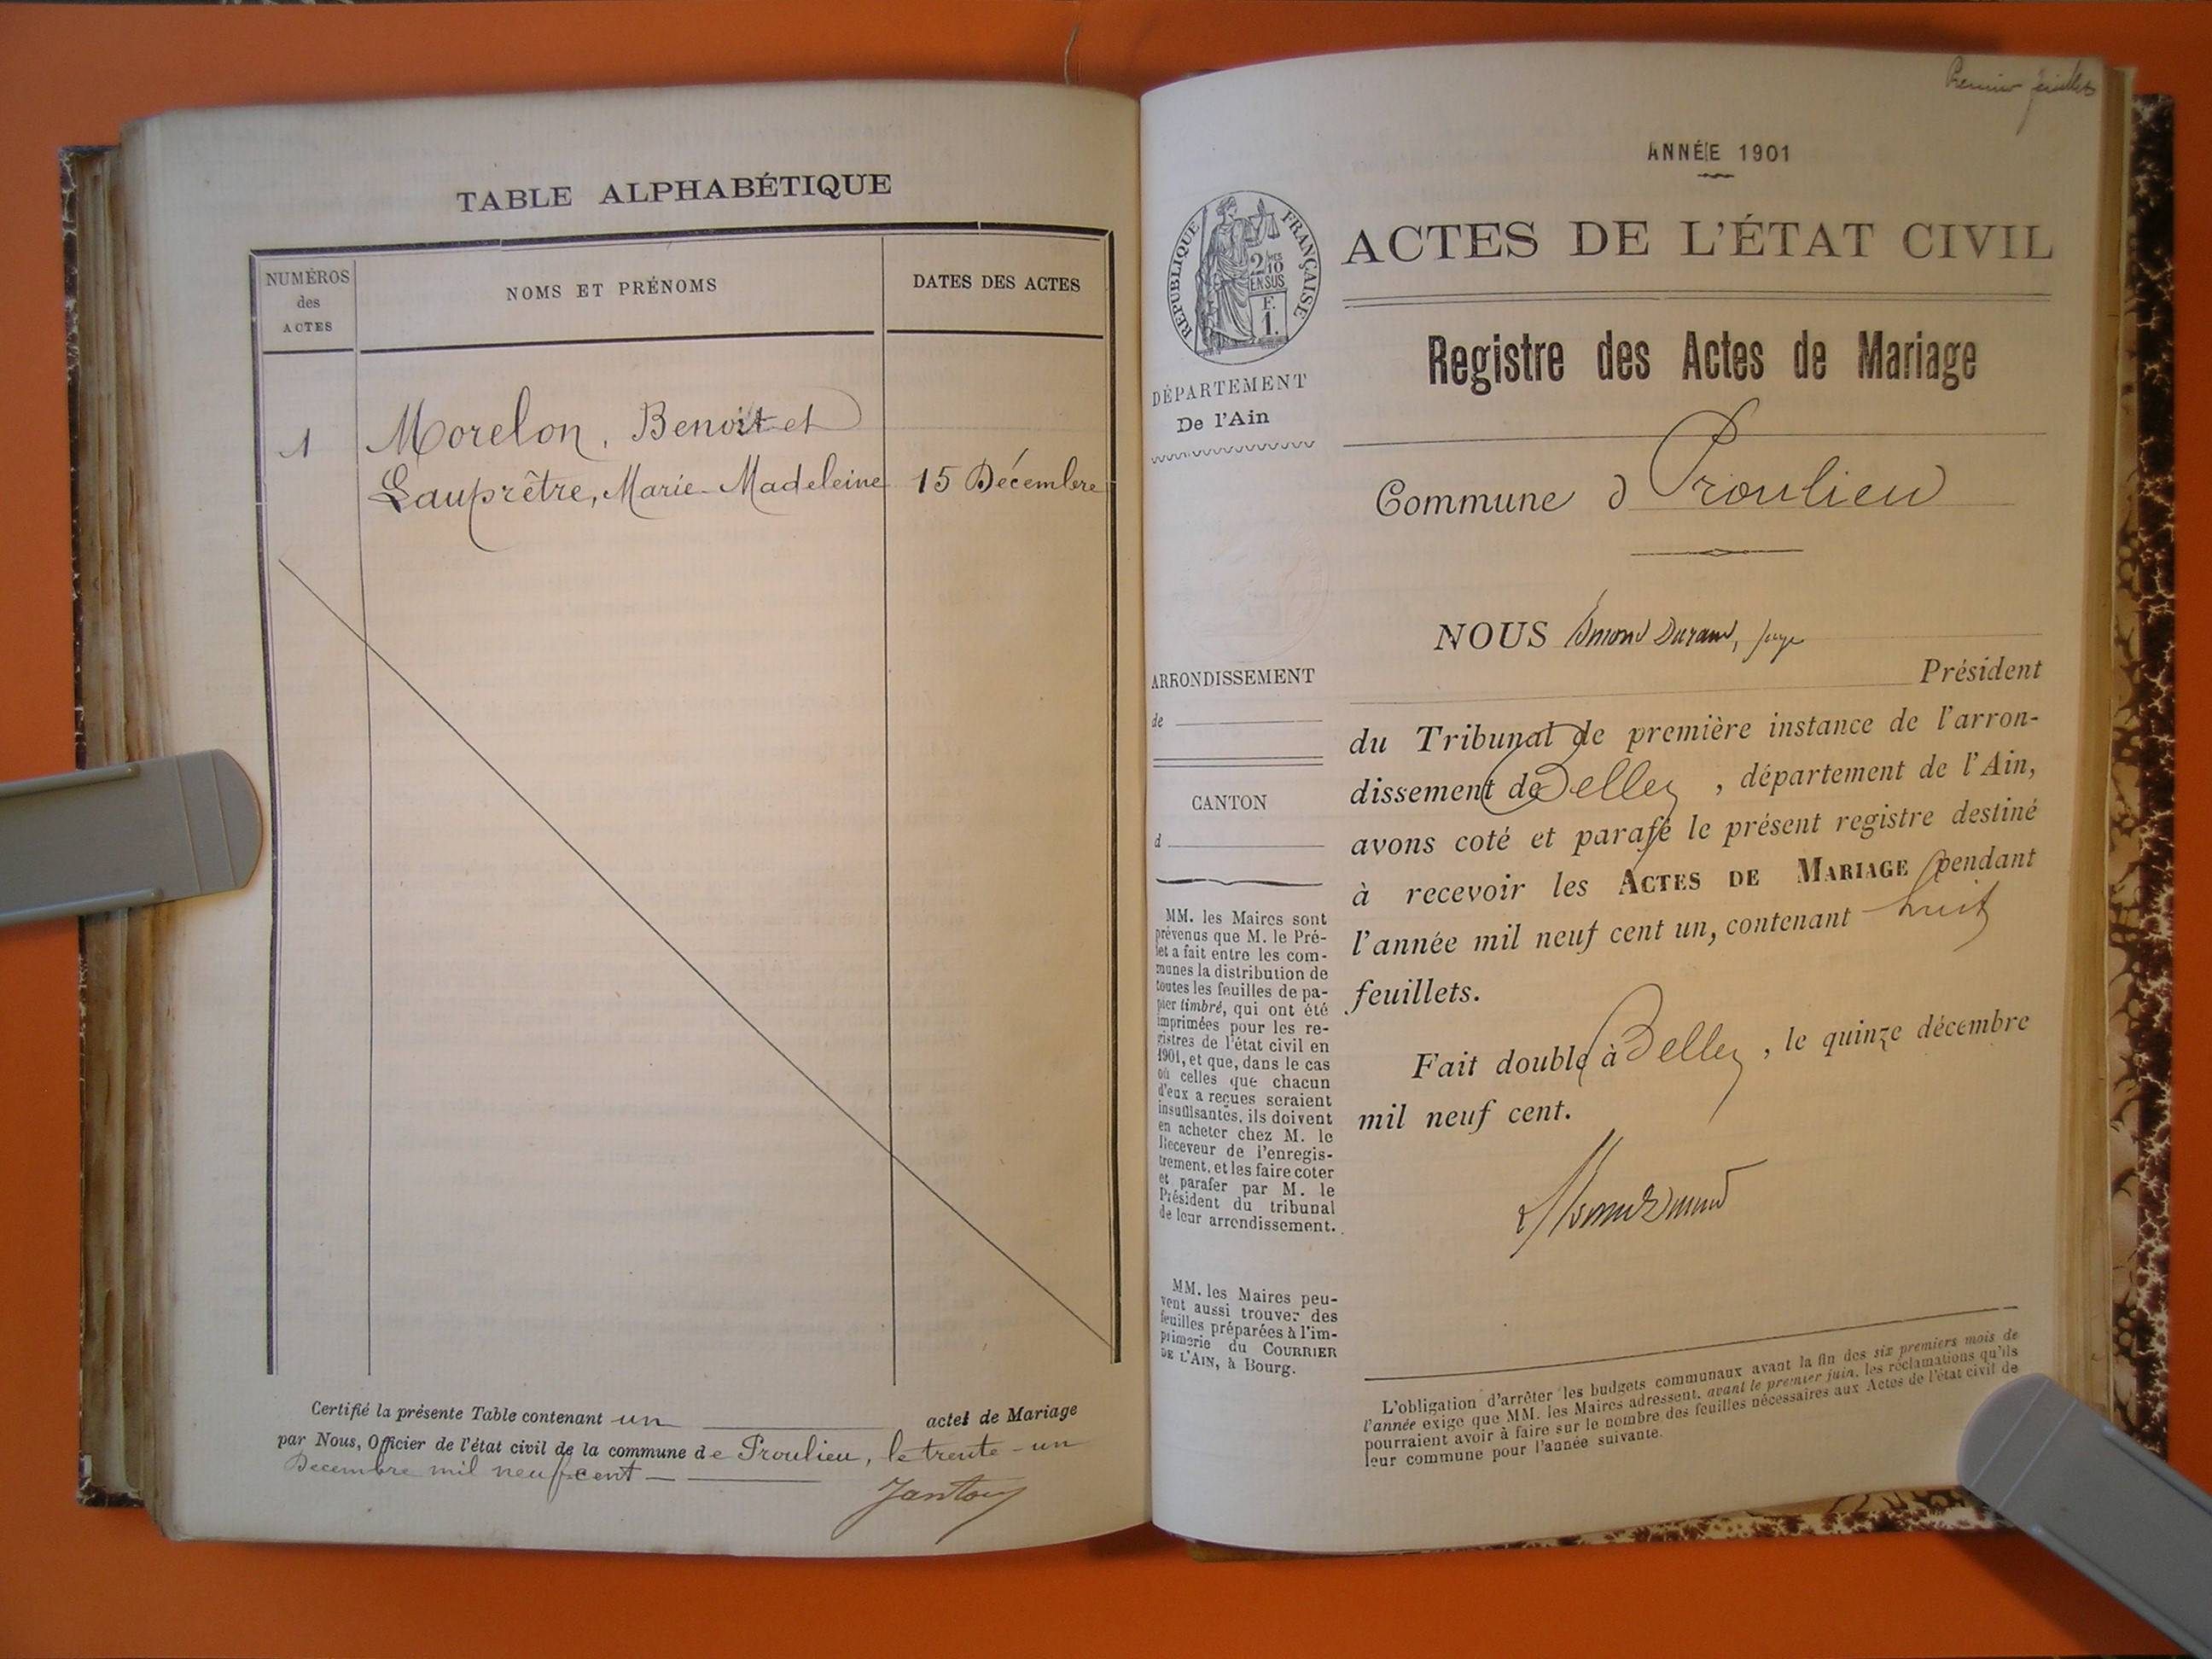 TABLE ALPHABÉTIQUE
NUMÉROS
des
ACTES
NOMS ET PRÉNOMS
DATES DES ACTES
1
Morelon, Benoît et
Lauprêtre, Marie-Madeleine
15 Décembre
Certifié la présente Table contenant un actes de Mariage
par Nous, Officier de l'état civil de la commune de Proulieu, le trente-un
Decembre mil neuf cent
Premier feuillet
ANNÉE 1901
RÉPUBLIQUE FRANÇAISE
2/10
EN SUS
F.
1.
ACTES DE L'ÉTAT CIVIL
Registre des Actes de Mariage
DÉPARTEMENT
De l'Ain
Commune d Proulieu
NOUS Durand, juge
Président
du Tribunal de première instance de l'arron-
dissement de Belley, département de l'Ain,
avons coté et parafé le présent registre destiné
à recevoir les ACTES DE MARIAGE pendant
l'année mil neuf cent un, contenant huit
feuillets.
Fait double à Belley, le quinze décembre
mil neuf cent.
ARRONDISSEMENT
de
CANTON
d
MM. les Maires sont
prévenus que M. le Pré-
fet a fait entre les com-
munes la distribution de
toutes les feuilles de pa-
pier timbré, qui ont été
imprimées pour les re-
gistres de l'état civil en
1901, et que, dans le cas
où celles que chacun
d'eux a reçues seraient
insuffisantes, ils doivent
en acheter chez M. le
Receveur de l'enregis-
trement, et les faire coter
et parafer par M. le
Président du tribunal
de leur arrondissement.
MM. les Maires peu-
vent aussi trouver des
feuilles préparées à l'im-
primerie du COURRIER
DE L'AIN, à Bourg.
L'obligation d'arrêter les budgets communaux avant la fin des six premiers mois de
l'année exige que MM. les Maires adressent, avant le premier juin, les réclamations qu'ils
pourraient avoir à faire sur le nombre des feuilles nécessaires aux Actes de l'état civil de
leur commune pour l'année suivante.